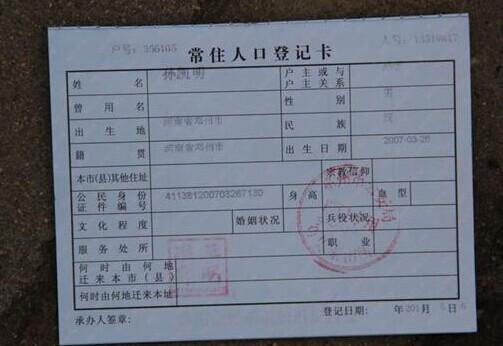 户号: 356105
常住人口登记卡
姓名 孙凯明 户主或与户主关系
曾用名 性别 男
出生地 河南省邓州市 民族 汉
籍贯 河南省邓州市 出生日期 2007-03-26
本市(县)其他住址 宗教信仰
公民身份证件编号 411381200703267130 身高 血型
文化程度 婚姻状况 兵役状况
服务处所 职业
何时由何地迁来本市(县)
何时由何地迁来本址
承办人签章: 登记日期: 年201 月